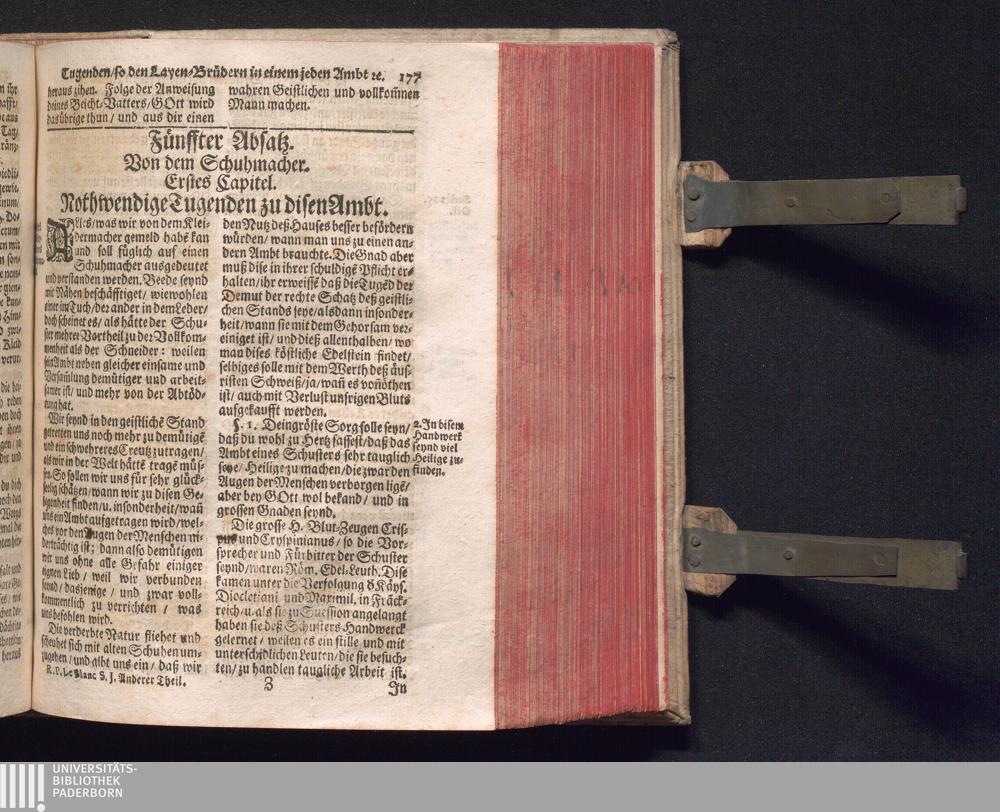 Tugenden/so den Layen-Brüdern in einem jeden Ambt ꝛc. 177
heraus zihen. Folge der Anweisung
deines Beicht-Vatters/GOtt wird
das übrige thun/ und aus dir einen
wahren Geistlichen und vollkom̃nen
Mann machen.
Fünffter Absatz.
Von dem Schuhmacher.
Erstes Capitel.
Nothwendige Tugenden zu disen Ambt.
ALles/was wir von dem Klei-
dermacher gemeld habẽ kan
und soll füglich auf einen
Schuhmacher ausgedeutet
und verstanden werden. Beede seynd
mit Nähen beschäfftiget/ wiewohlen
einer im Tuch/der ander in dem Leder/
doch scheinet es/ als hätte der Schu-
ster mehrer Vortheil zu der Vollkom-
menheit als der Schneider: weilen
sein Ambt neben gleicher einsame und
Versam̃lung demütiger und arbeit-
samer ist/ und mehr von der Abtöd-
tung hat.
Wir seynd in den geistlichẽ Stand
getretten uns noch mehr zu demütigẽ
und ein schwehreres Creutz zutragen/
als wir in der Welt hättẽ tragẽ müs-
sen. So sollen wir uns für sehr glück-
seelig schätzen/wann wir zu disen Ge-
legenheit finden/u. insonderheit/wañ
uns ein Ambt aufgetragen wird/wel-
ches vor den Augen der Menschen ni-
derträchtig ist; dann also demütigen
wir uns ohne alle Gefahr einiger
eignen Lieb/ weil wir verbunden
seynd/ dasjenige/ und zwar voll-
kommentlich zu verrichten/ was
uns befohlen wird.
Die verderbte Natur fliehet und
scheuhet sich mit alten Schuhen um-
zugehen/ und gibt uns ein/ daß wir
R. P. Le Blanc S. J. Anderer Theil.
den Nutz deß Hauses besser befördern
würden/ wann man uns zu einen an-
dern Ambt brauchte. Die Gnad aber
muß dise in ihrer schuldigẽ Pflicht er-
halten/ihr erweissẽ daß die Tugẽd der
Demut der rechte Schatz deß geistli-
chen Stands seye/alsdann insonder-
heit/wann sie mit dem Gehorsam ver-
einiget ist/ und dieß allenthalben/ wo
man dises köstliche Edelstein findet/
selbiges solle mit dem Werth deß äus-
risten Schweiß/ja/wañ es voñöthen
ist/ auch mit Verlust unsrigen Bluts
aufgekaufft werden.
§. 1. Dein gröste Sorg solle seyn/
daß du wohl zu Hertz fassest/daß das
Ambt eines Schusters sehr tauglich
seye/ Heilige zu machen/die zwar den
Augen der Menschen verborgen ligẽ/
aber bey GOtt wol bekand/ und in
grossen Gnaden seynd.
2. In disem
Handwerk
seynd viel
Heilige zu-
finden.
Die grosse H. Blut-Zeugen Cris-
pus und Cryspinianus/ so die Vor-
sprecher und Fürbitter der Schuster
seynd/waren Röm. Edel-Leuth. Dise
kamen unter die Verfolgung ď Käys.
Diocletiani und Maximil. in Fräck-
reich/u. als sie zu Suession angelangt
haben sie deß Schusters Handwerck
gelernet/ weilen es ein stille und mit
unterschidlichen Leuten/die sie besuch-
ten/ zu handlen taugliche Arbeit ist.
Z
In
UNIVERSITÄTS-
BIBLIOTHEK
PADERBORN